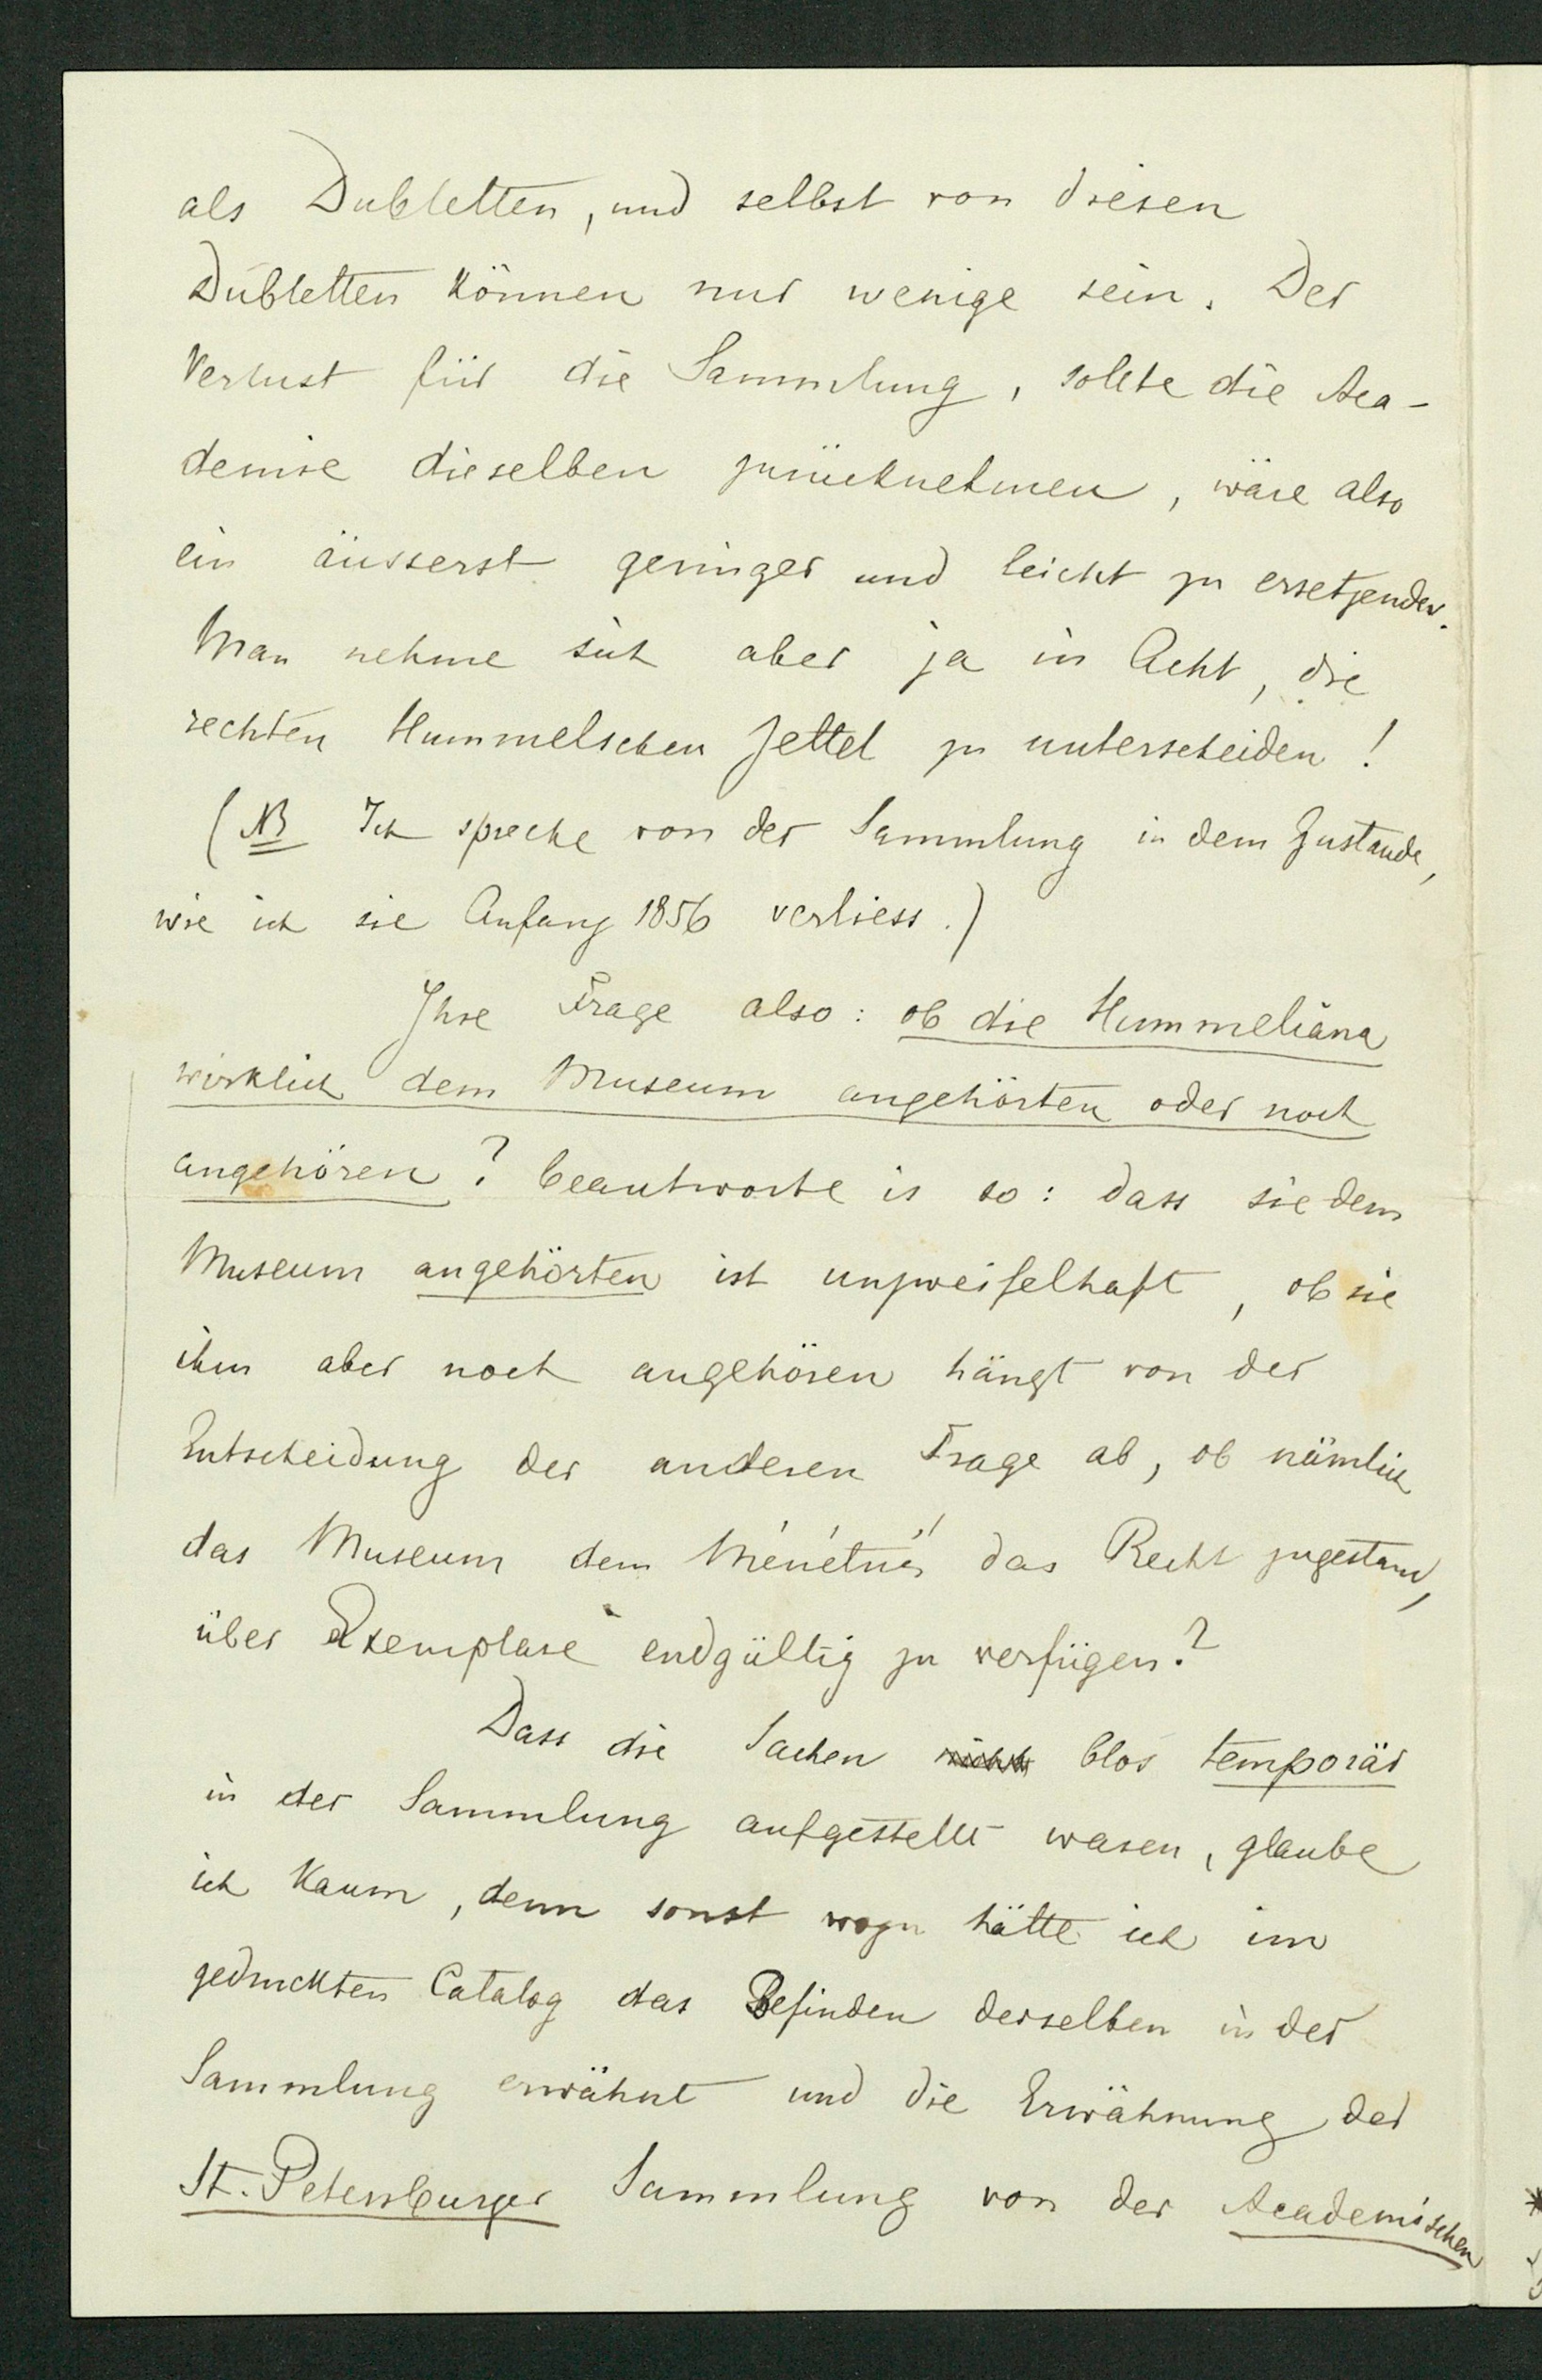 als Dubletten, und selbst von diesen
Dubletten können nur wenige sein. Der
Verlust für die Sammlung, sollte die Aca-
demie dieselben zurücknehmen, wäre also
ein äusserst geringer und leicht zu ersetzender.
Man nehme sich aber ja in Acht, die
rechten Hummelschen Zettel zu unterscheiden!
(NB Ich spreche von der Sammlung in dem Zustande,
wie ich sie Anfang 1856 verliess.)
Ihre Frage also: ob die Hummeliana
wirklich dem Museum angehörten oder noch
angehören? beantworte is so: dass sie dem
Museum angehörten ist unzweifelhaft, ob sie
ihm aber noch angehören hängt von der
Entscheidung der anderen Frage ab, ob nämlich
das Museum dem Ménétriés das Recht zugestand,
über Exemplare endgültig zu verfügen?
Dass die Sachen nicht blos temporär
in der Sammlung aufgestellt waren, glaube
ich kaum, denn sonst wozu hätte ich im
gedruckten Catalog das Befinden derselben in der
Sammlung erwähnt und die Erwähnung der
St. Petersburger Sammlung von der Academischen